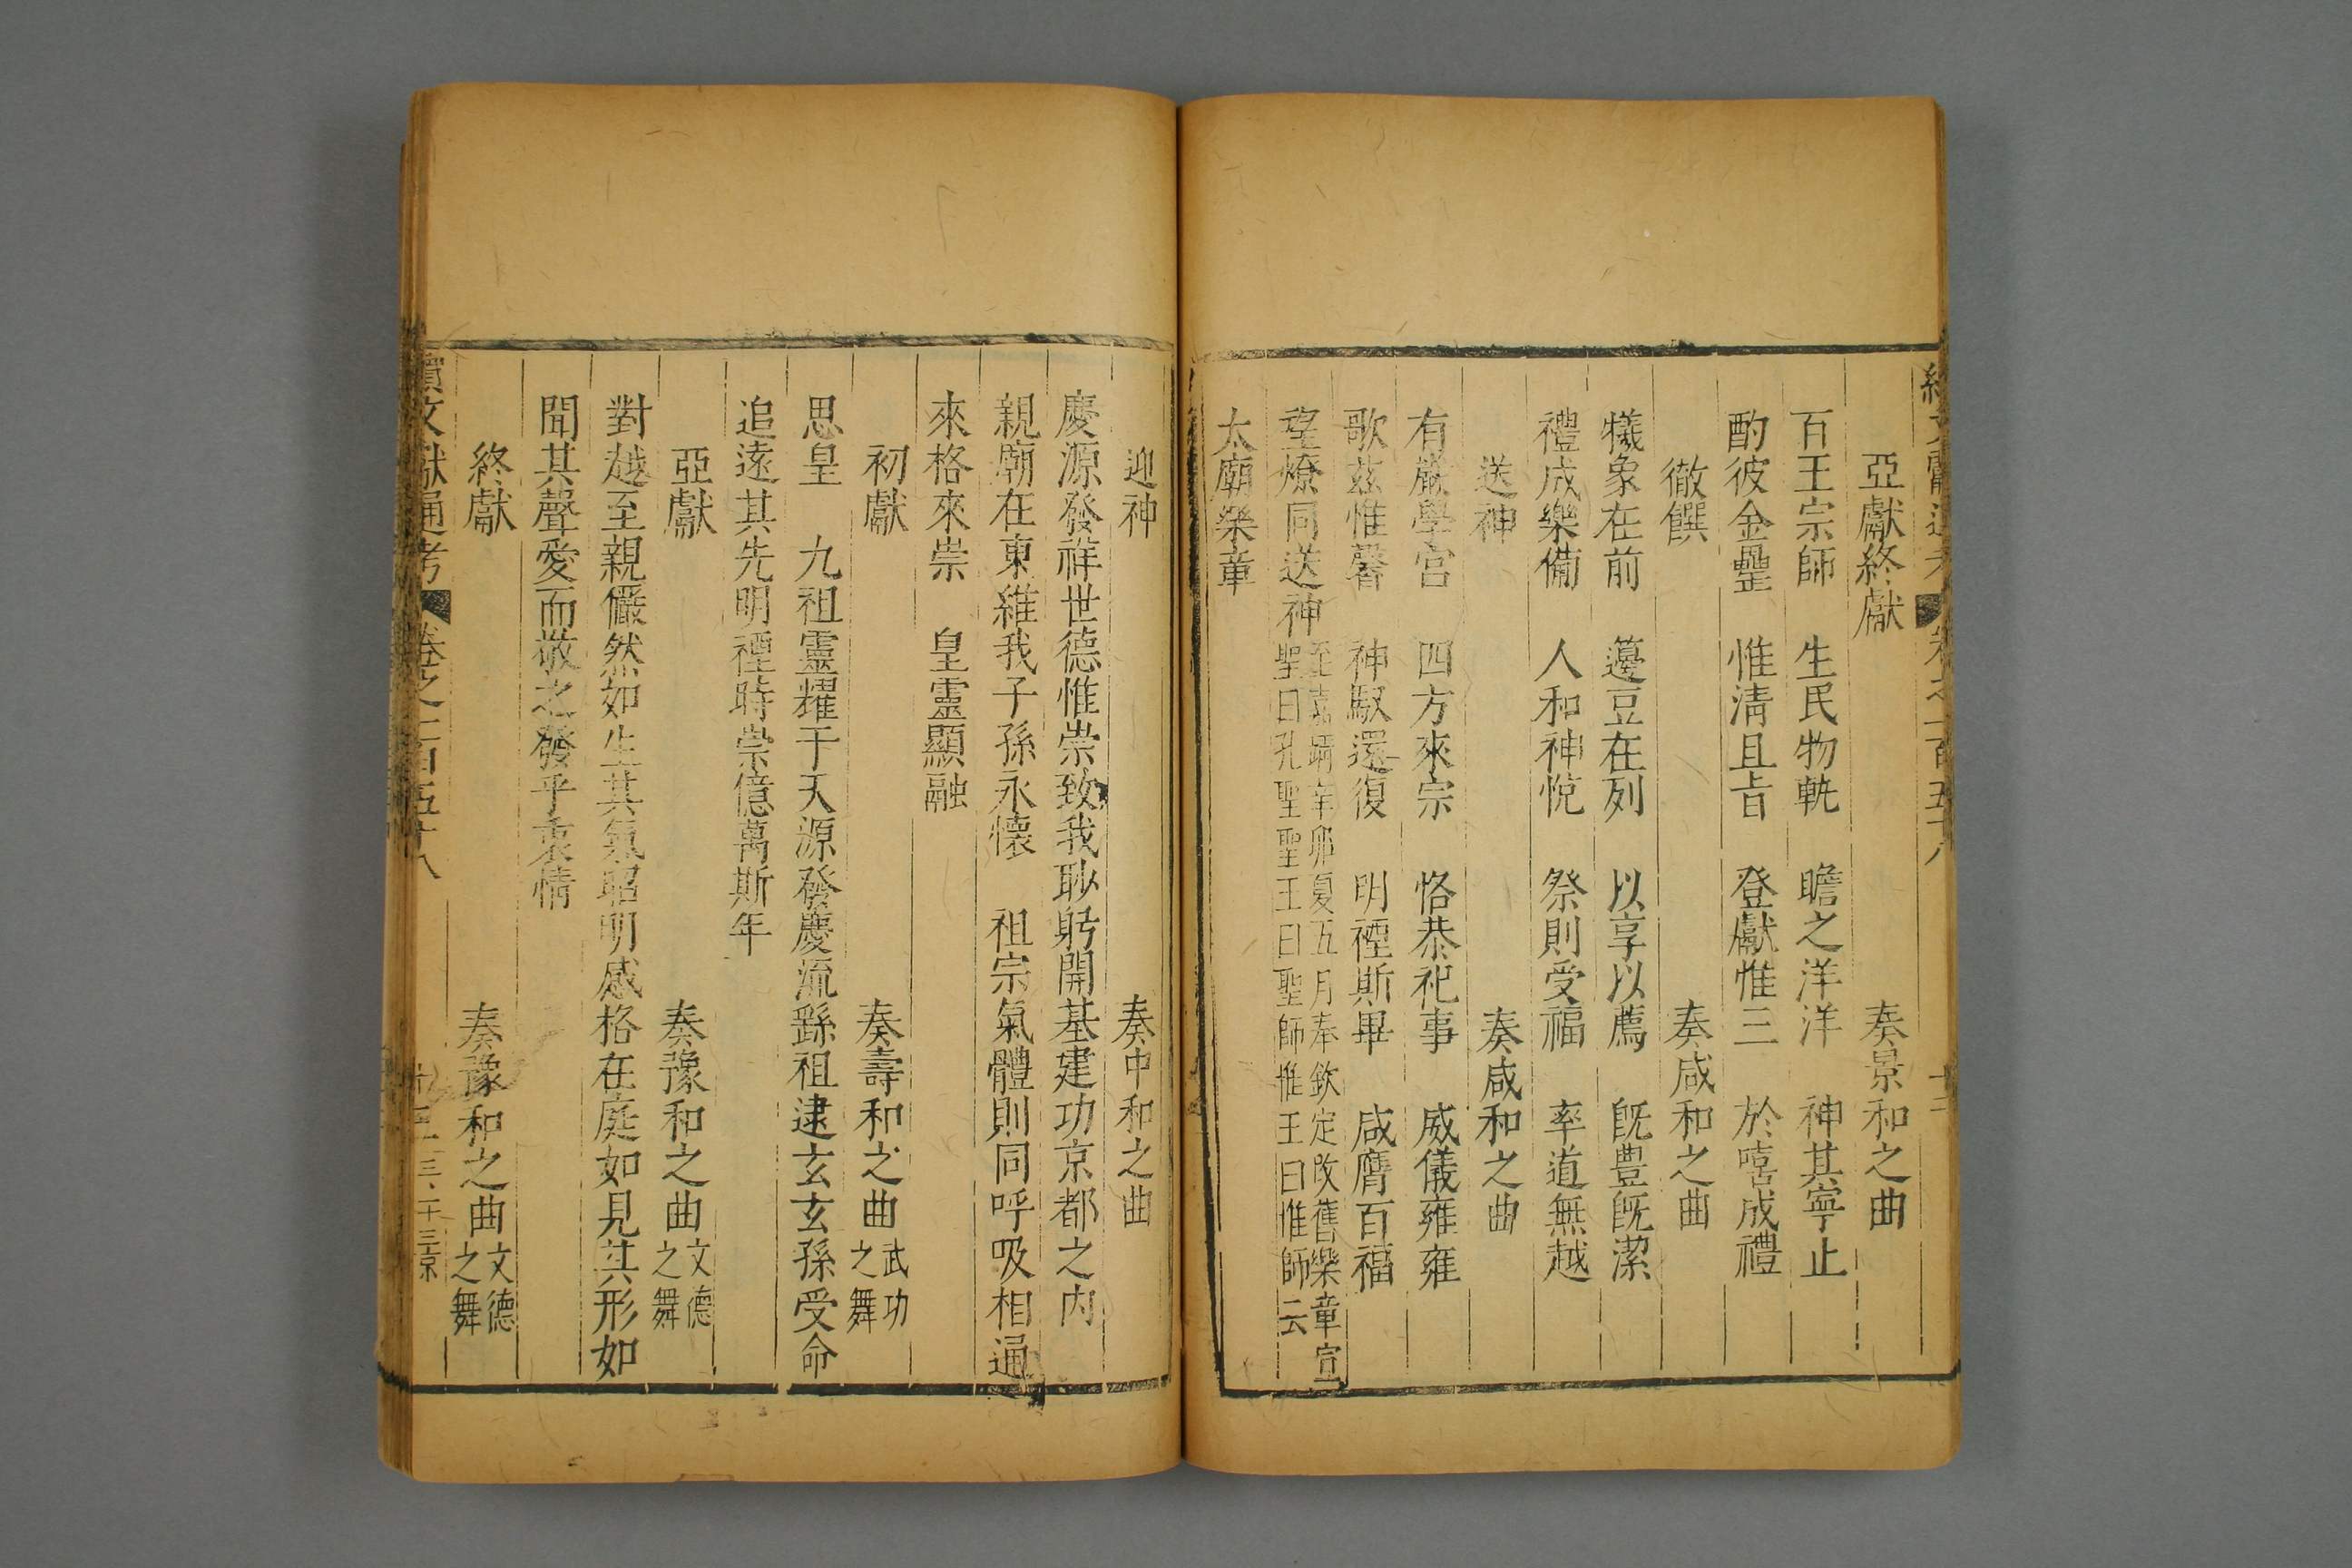 亞獻終獻　奏景和之曲
百王宗師　生民物軌　瞻之洋洋　神其寧止
酌彼金罍　惟清且旨　登獻惟三　於嘻成禮
徹饌　奏咸和之曲
犧象在前　籩豆在列　以享以薦　旣豊旣潔
禮成樂備　人和神悅　祭則受福　率道無越
送神　奏咸和之曲
有嚴學宫　四方來宗　恪恭祀事　威儀雍雍
歌茲惟馨　神馭還復　明禋斯畢　咸膺百福
望燎同送神
至嘉靖辛卯夏五月奉欽定改舊樂章宣
聖曰孔聖聖王曰聖師惟王曰惟師云
太廟樂章
迎神　奏中和之曲
慶源發祥世德惟崇致我眇躬開基建功京都之内
親廟在東維我子孫永懷　祖宗氣體則同呼吸相通
來格來崇　皇靈顯融
初獻　奏壽和之曲武功之舞
思皇　九祖靈耀于天源發慶流繇祖逮玄玄孫受命
追遠其先明禋時崇億萬斯年
亞獻　奏豫和之曲文德之舞
對越至親儼然如生其氣昭明感格在庭如見其形如
聞其聲愛而敬之發乎衷情
終獻　奏豫和之曲文德之舞
續文獻通考　卷之一百五十八